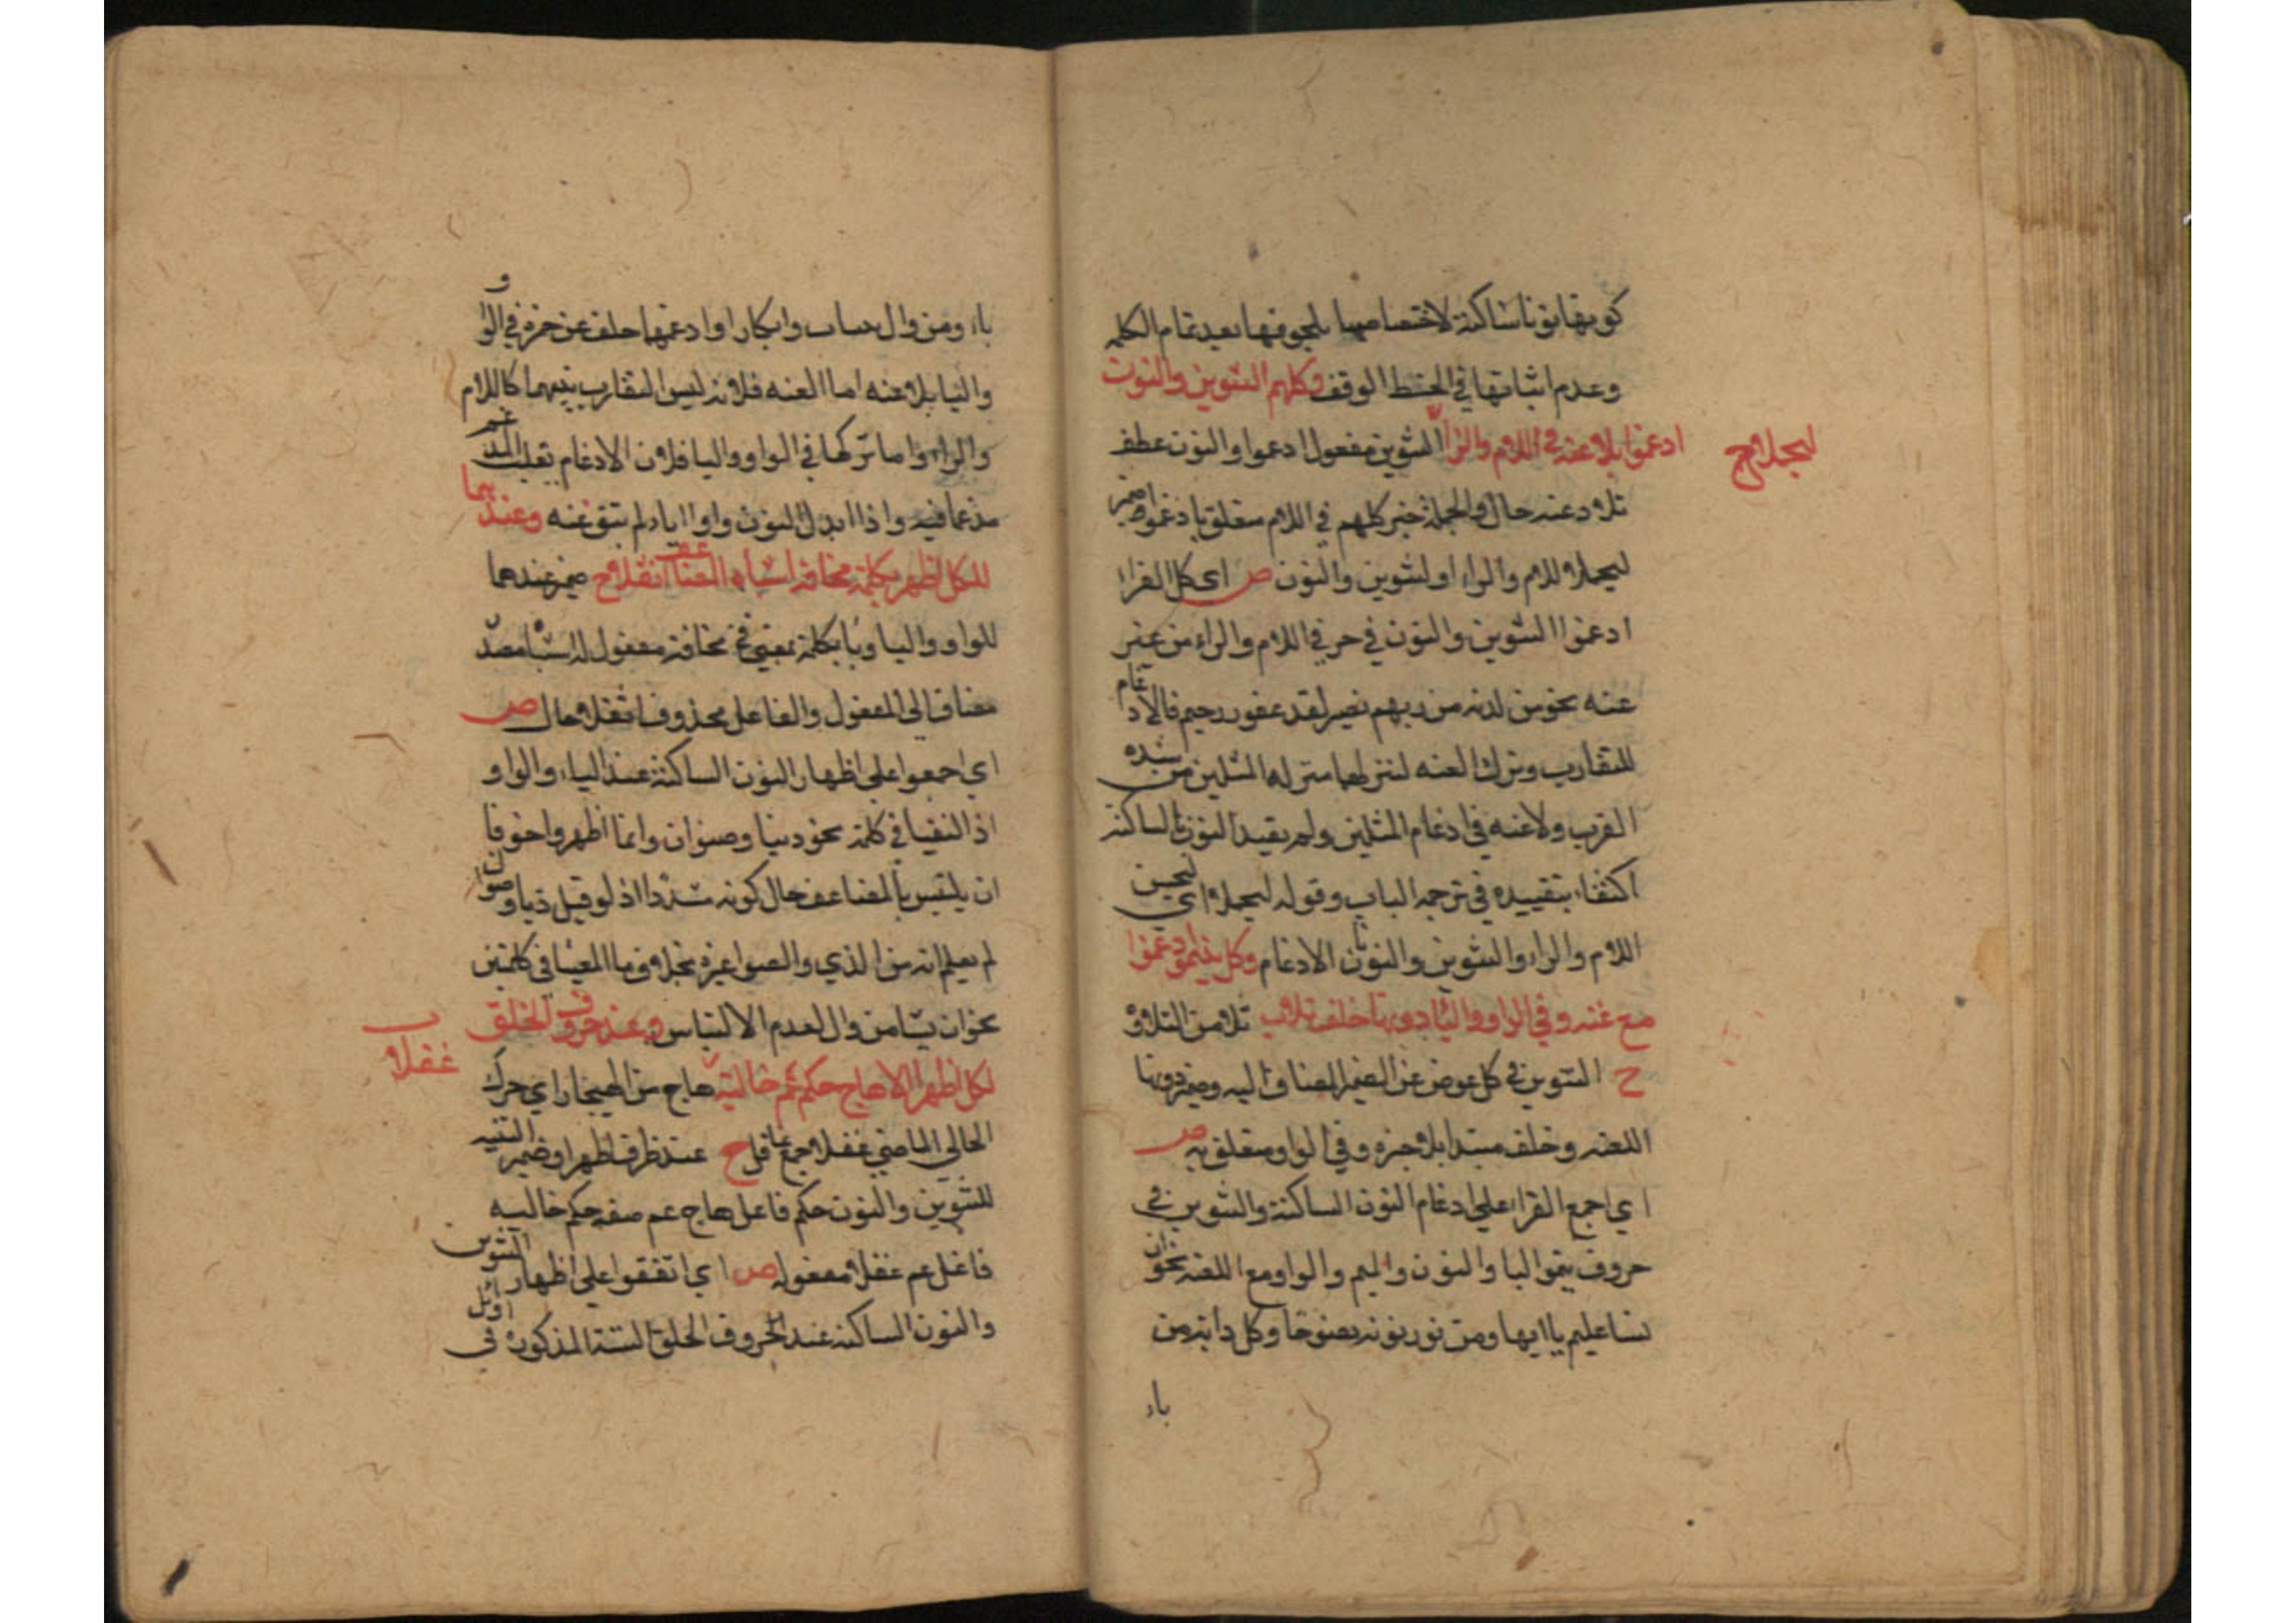 كونها نونا ساكنة لاختصاصها بلحوقها بعد تمام الكلمه
وعدم اثباتها في الخط الوقف وكلهم التنوين والنون
ادغموا بلا غنه في اللام والرا التنوين مفعول ادغموا والنون عطف
ليجملا ح
بلا غنه حال والجملة خبر كلهم في اللام متعلق بادغموا وضمير
ليجملا للام والراء او لتنوين والنون ص اي كل القراء
ادغموا التنوين والنون في حرفي اللام والراء من غير
غنه نحو من لدنه من ربهم نصير لقد غفور رحيم فالادغام
للتقارب وترك الغنه لتنزلهما منزلة المثلين من شدة
القرب ولا غنه في ادغام المثلين ولم يقيد النون بالساكنة
اكتفاء بتقييده في ترجمه الباب وقوله ليجملا اي ليحسن
اللام والراء والتنوين والنون بالادغام وكل بينمو ادغموا
مع غنه وفي الواو واليا دونها خلف تلا ب تلا من التلاوة
ح التنوين في كل عوض عن الضمير المضاف اليه وضمير دونها
للغنه وخلف مبتدا بلا خبره وفي الواو متعلق به ص
اي اجمع القراء على ادغام النون الساكنة والتنوين في
حروف ينمو اليا والنون والميم والواو مع الغنه نحو ان
نشا عليم يا ايها ومن نور يومئذ وكل دابة من
باء
باء ومن وال وابكارا وادغمها خلف عن حمزة في الواو
واليا بلا غنه اما الغنه فلانه ليس التقارب بينهما كاللام
والراء واما تركها في الواو واليا فلان الادغام يقلب المدغم
مدغما فيه واذا ابدل النون واوا او ياء لم تبق غنه وعندهما
للكل اظهر بكلمة مخافة اشباه المضاعف اثقلا ح ضمير عندهما
للواو واليا وبا بكلمة بمعنى في مخافة مفعول له اشباه مصدر
مضاف الى المفعول والفاعل محذوف اثقلا حال ص
اي اجمعوا على اظهار النون الساكنة عند الياء والواو
اذ التقيا في كلمة نحو دنيا وصنوان وانما اظهروا خوفا
ان يلتبس بالمضاعف حال كونه مشددا اذ لو قيل ديا وصوان
لم يعلم انه من الذي والصوا غيره بخلاف ما التقيا في كلمتين
نحو ان يشا من وال لعدم الالتباس وعند حروف الحلق
للكل اظهرا الا هاج حكم عم خاليه هاج من الهيجان اي حرك
غفلا ب
الخالي الماضي غفلا جمع غافل ح عند ظرف اظهرا وضمير التثنيه
للتنوين والنون حكم فاعل هاج عم صفة حكم خاليه
فاعل عم غفلا مفعوله ص اي اتفقوا على اظهار التنوين
والنون الساكنة عند الحروف الحلق الستة المذكورة في اوائل